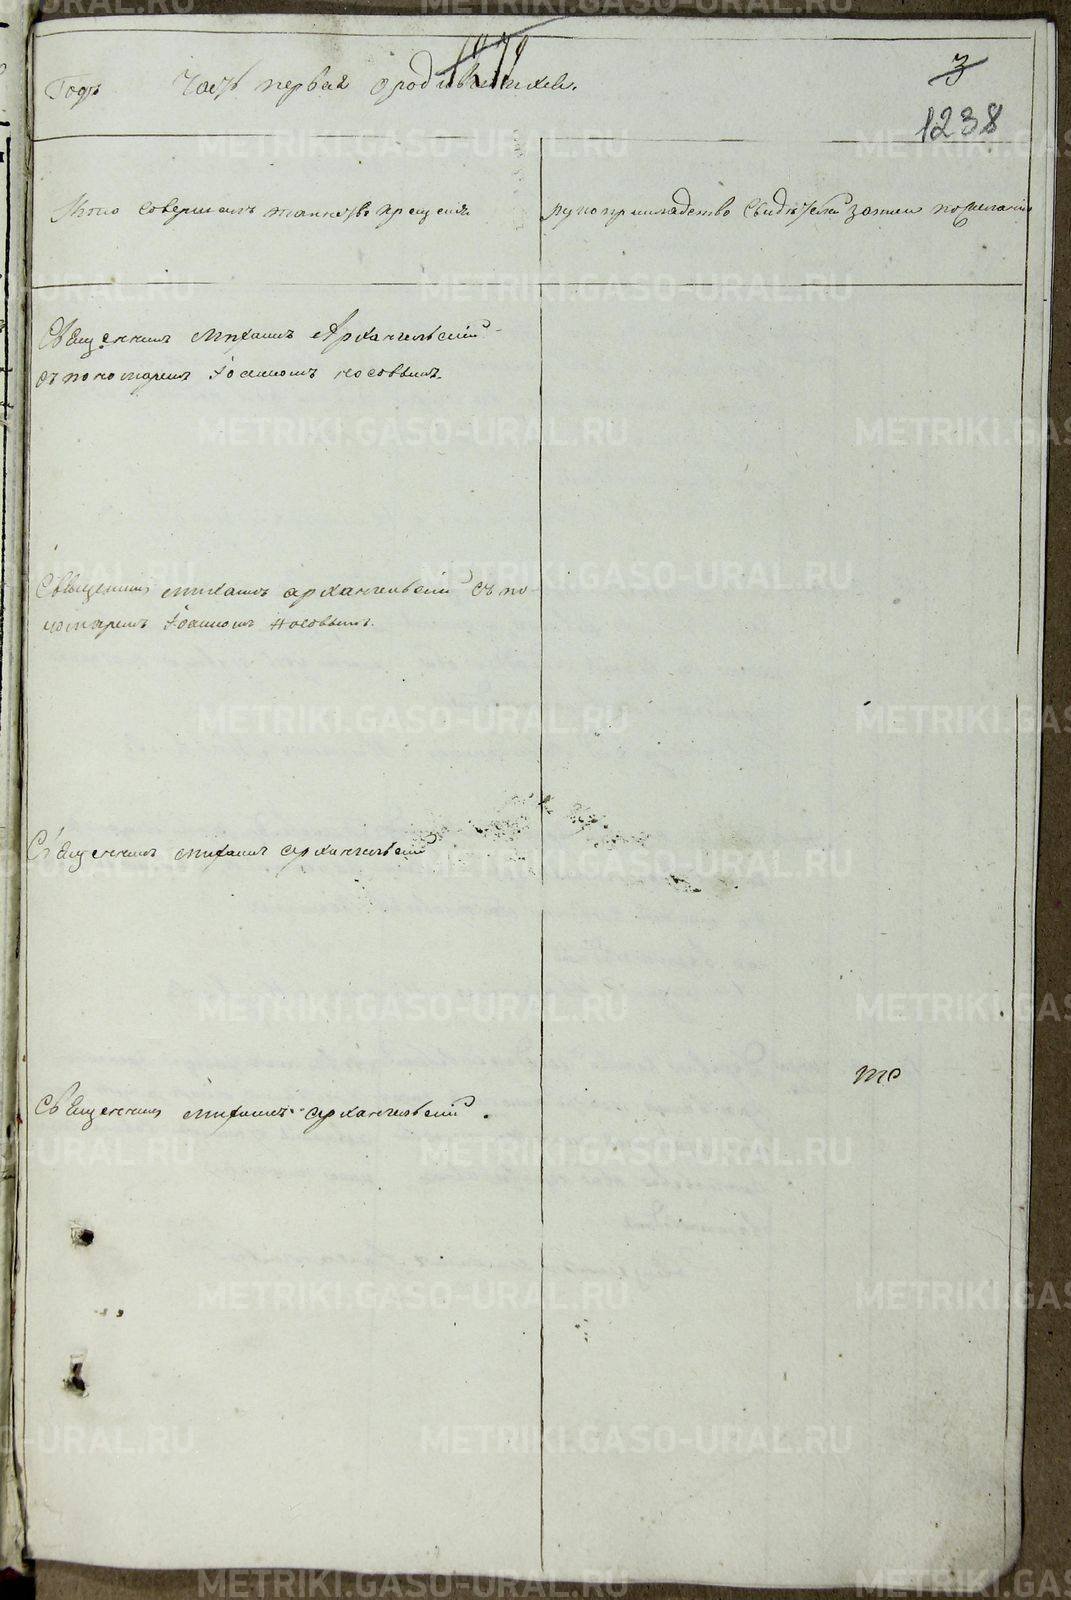 Годъ Часть первая о родившихся.
3
1238
Кто совершалъ таинство крещенія
рукоприкладство свидѣтелей записи по желанію
Священникъ Михаилъ Архангельскій
съ пономаремъ Іоанномъ Носовымъ.
Священникъ Михаилъ Архангельскій съ по-
номаремъ Іоанномъ Носовымъ.
Священникъ Михаилъ Архангельскій
Священникъ Михаилъ Архангельскій.
то
METRIKI.GASO-URAL.RU